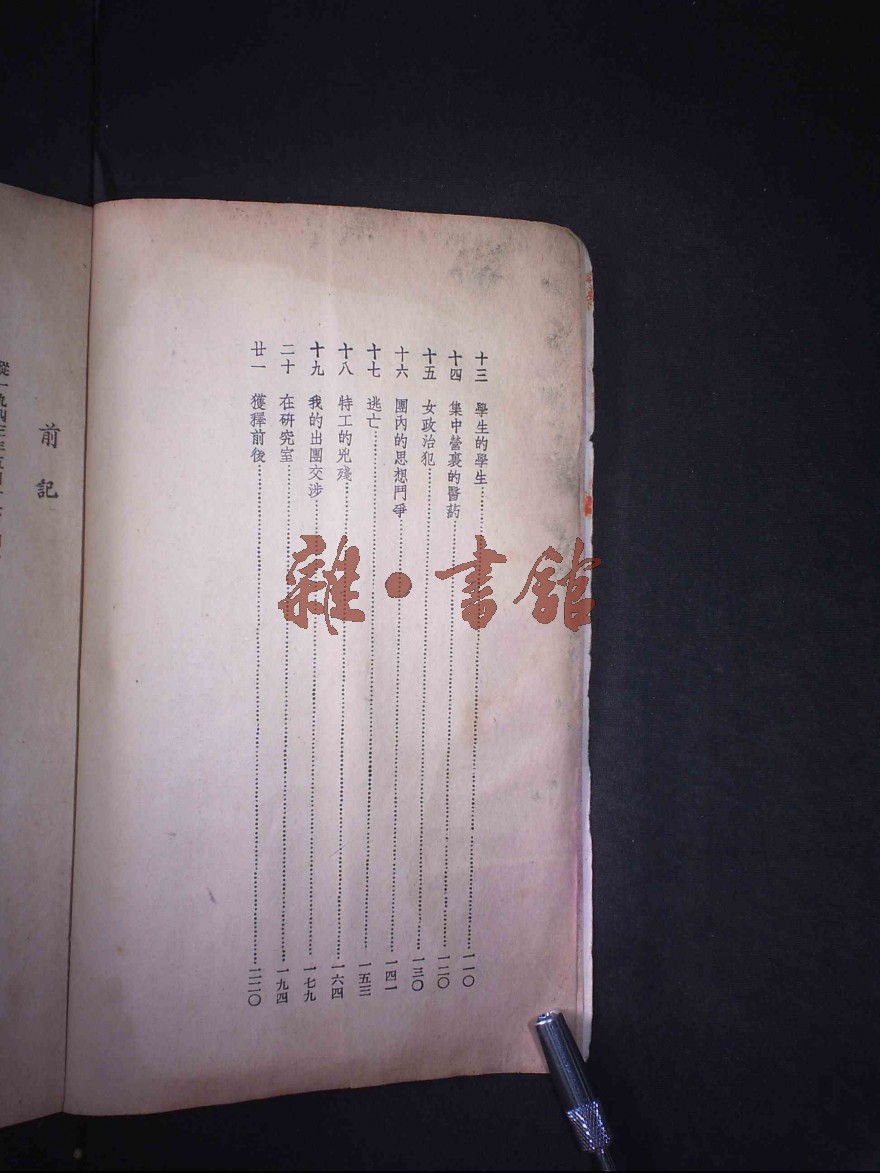 十三 學生的學生 一一〇
十四 集中營裏的醫葯 一二〇
十五 女政治犯 一三〇
十六 團內的思想鬥爭 一四一
十七 逃亡 一五三
十八 特工的兇殘 一六四
十九 我的出團交涉 一七九
二十 在研究室 一九四
廿一 獲釋前後 二二〇
雜·書館
前記
從一九四三年